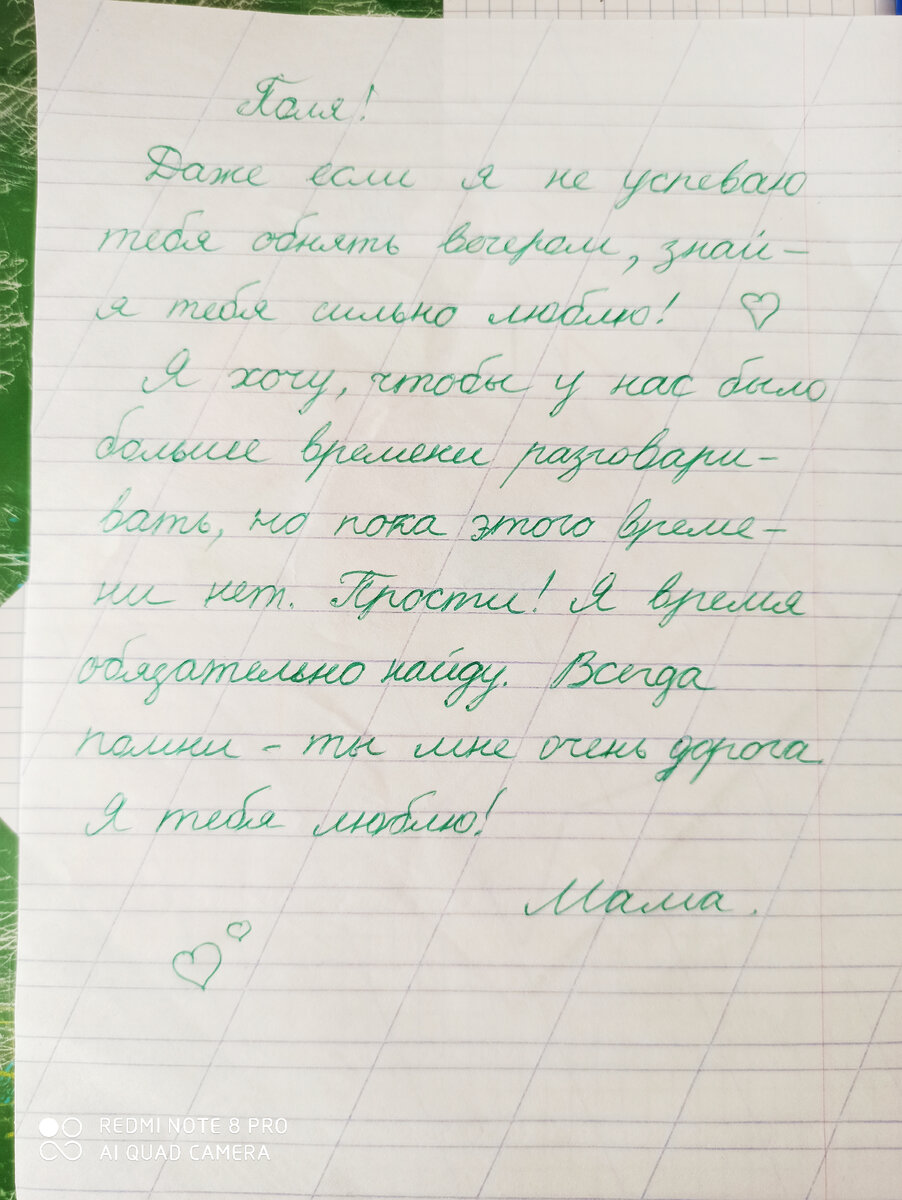 Поля!
Даже если я не успеваю
тебя обнять вечером, знай –
я тебя сильно люблю! ♡
Я хочу, чтобы у нас было
больше времени разговари-
вать, но пока этого време-
ни нет. Прости! Я время
обязательно найду. Всегда
помни – ты мне очень дорога.
Я тебя люблю!
Мама.
REDMI NOTE 8 PRO
AI QUAD CAMERA